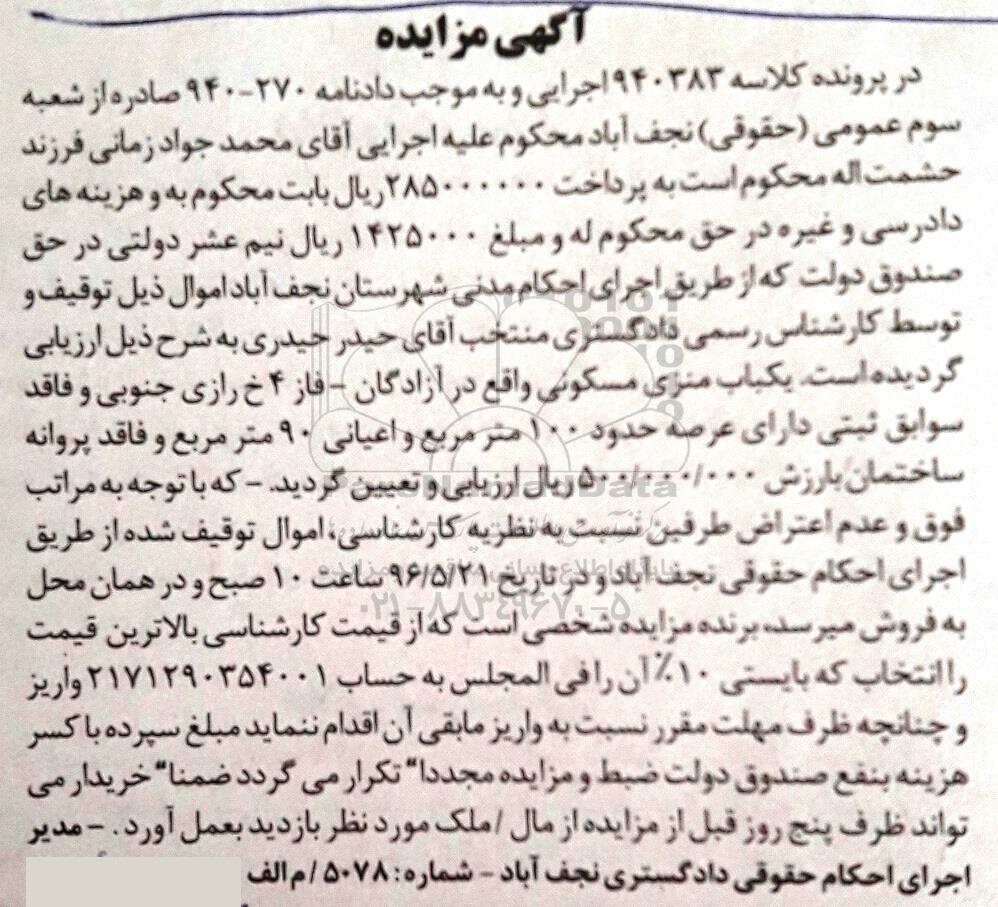 آگهی مزایده
در پرونده کلاسه ۹۴۰۳۸۳ اجرایی و به موجب دادنامه ۲۷۰-۹۴۰ صادره از شعبه
سوم عمومی (حقوقی) نجف آباد محکوم علیه اجرایی آقای محمد جواد زمانی فرزند
حشمت اله محکوم است به پرداخت ۲۸۵۰۰۰۰۰۰ ریال بابت محکوم به و هزینه های
دادرسی و غیره در حق محکوم له و مبلغ ۱۴۲۵۰۰۰ ریال نیم عشر دولتی در حق
صندوق دولت که از طریق اجرای احکام مدنی شهرستان نجف آباد اموال ذیل توقیف و
توسط کارشناس رسمی دادگستری منتخب آقای حیدر حیدری به شرح ذیل ارزیابی
گردیده است. یکباب منزل مسکونی واقع در آزادگان - فاز ۴ خ رازی جنوبی و فاقد
سوابق ثبتی دارای عرصه حدود ۱۰۰ متر مربع و اعیانی ۹۰ متر مربع و فاقد پروانه
ساختمان بارزش ۵۰۰/۰۰۰/۰۰۰ ریال ارزیابی و تعیین گردید. - که با توجه به مراتب
فوق و عدم اعتراض طرفین نسبت به نظریه کارشناسی، اموال توقیف شده از طریق
اجرای احکام حقوقی نجف آباد و در تاریخ ۹۶/۵/۲۱ ساعت ۱۰ صبح و در همان محل
۰۲۱-۸۸۳۴۹۶۷۰-۵
به فروش میرسد، برنده مزایده شخصی است که از قیمت کارشناسی بالاترین قیمت
را انتخاب که بایستی ۱۰٪ آن را فی المجلس به حساب ۲۱۷۱۲۹۰۳۵۴۰۰۱ واریز
و چنانچه ظرف مهلت مقرر نسبت به واریز مابقی آن اقدام ننماید مبلغ سپرده با کسر
هزینه بنفع صندوق دولت ضبط و مزایده مجددا" تکرار می گردد ضمنا" خریدار می
تواند ظرف پنج روز قبل از مزایده از مال / ملک مورد نظر بازدید بعمل آورد. - مدیر
اجرای احکام حقوقی دادگستری نجف آباد - شماره: ۵۰۷۸ / م الف